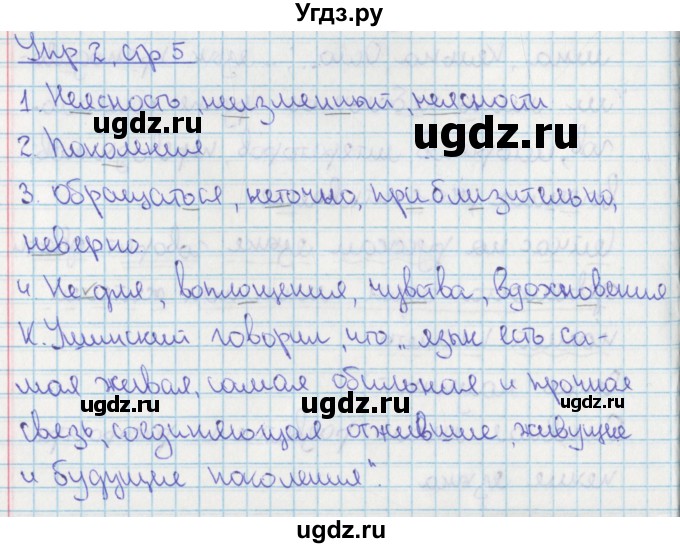 Угдз.ру
Упр 2, стр 5
1. Неясность, неизменный, неясности
ugdz.ru ugdz.ru
2. Поколения
3. Обращаться, неточно, приблизительно,
ugdz.ru ugdz.ru
неверно.
4. Не для, воплощения, чувства, вдохновения
К. Ушинский говорил, что „язык есть са-
мая живая, самая обильная и прочная
ugdz.ru ugdz.ru
связь, соединяющая отжившие, живущие
и будущие поколения“.
ugdz.ru